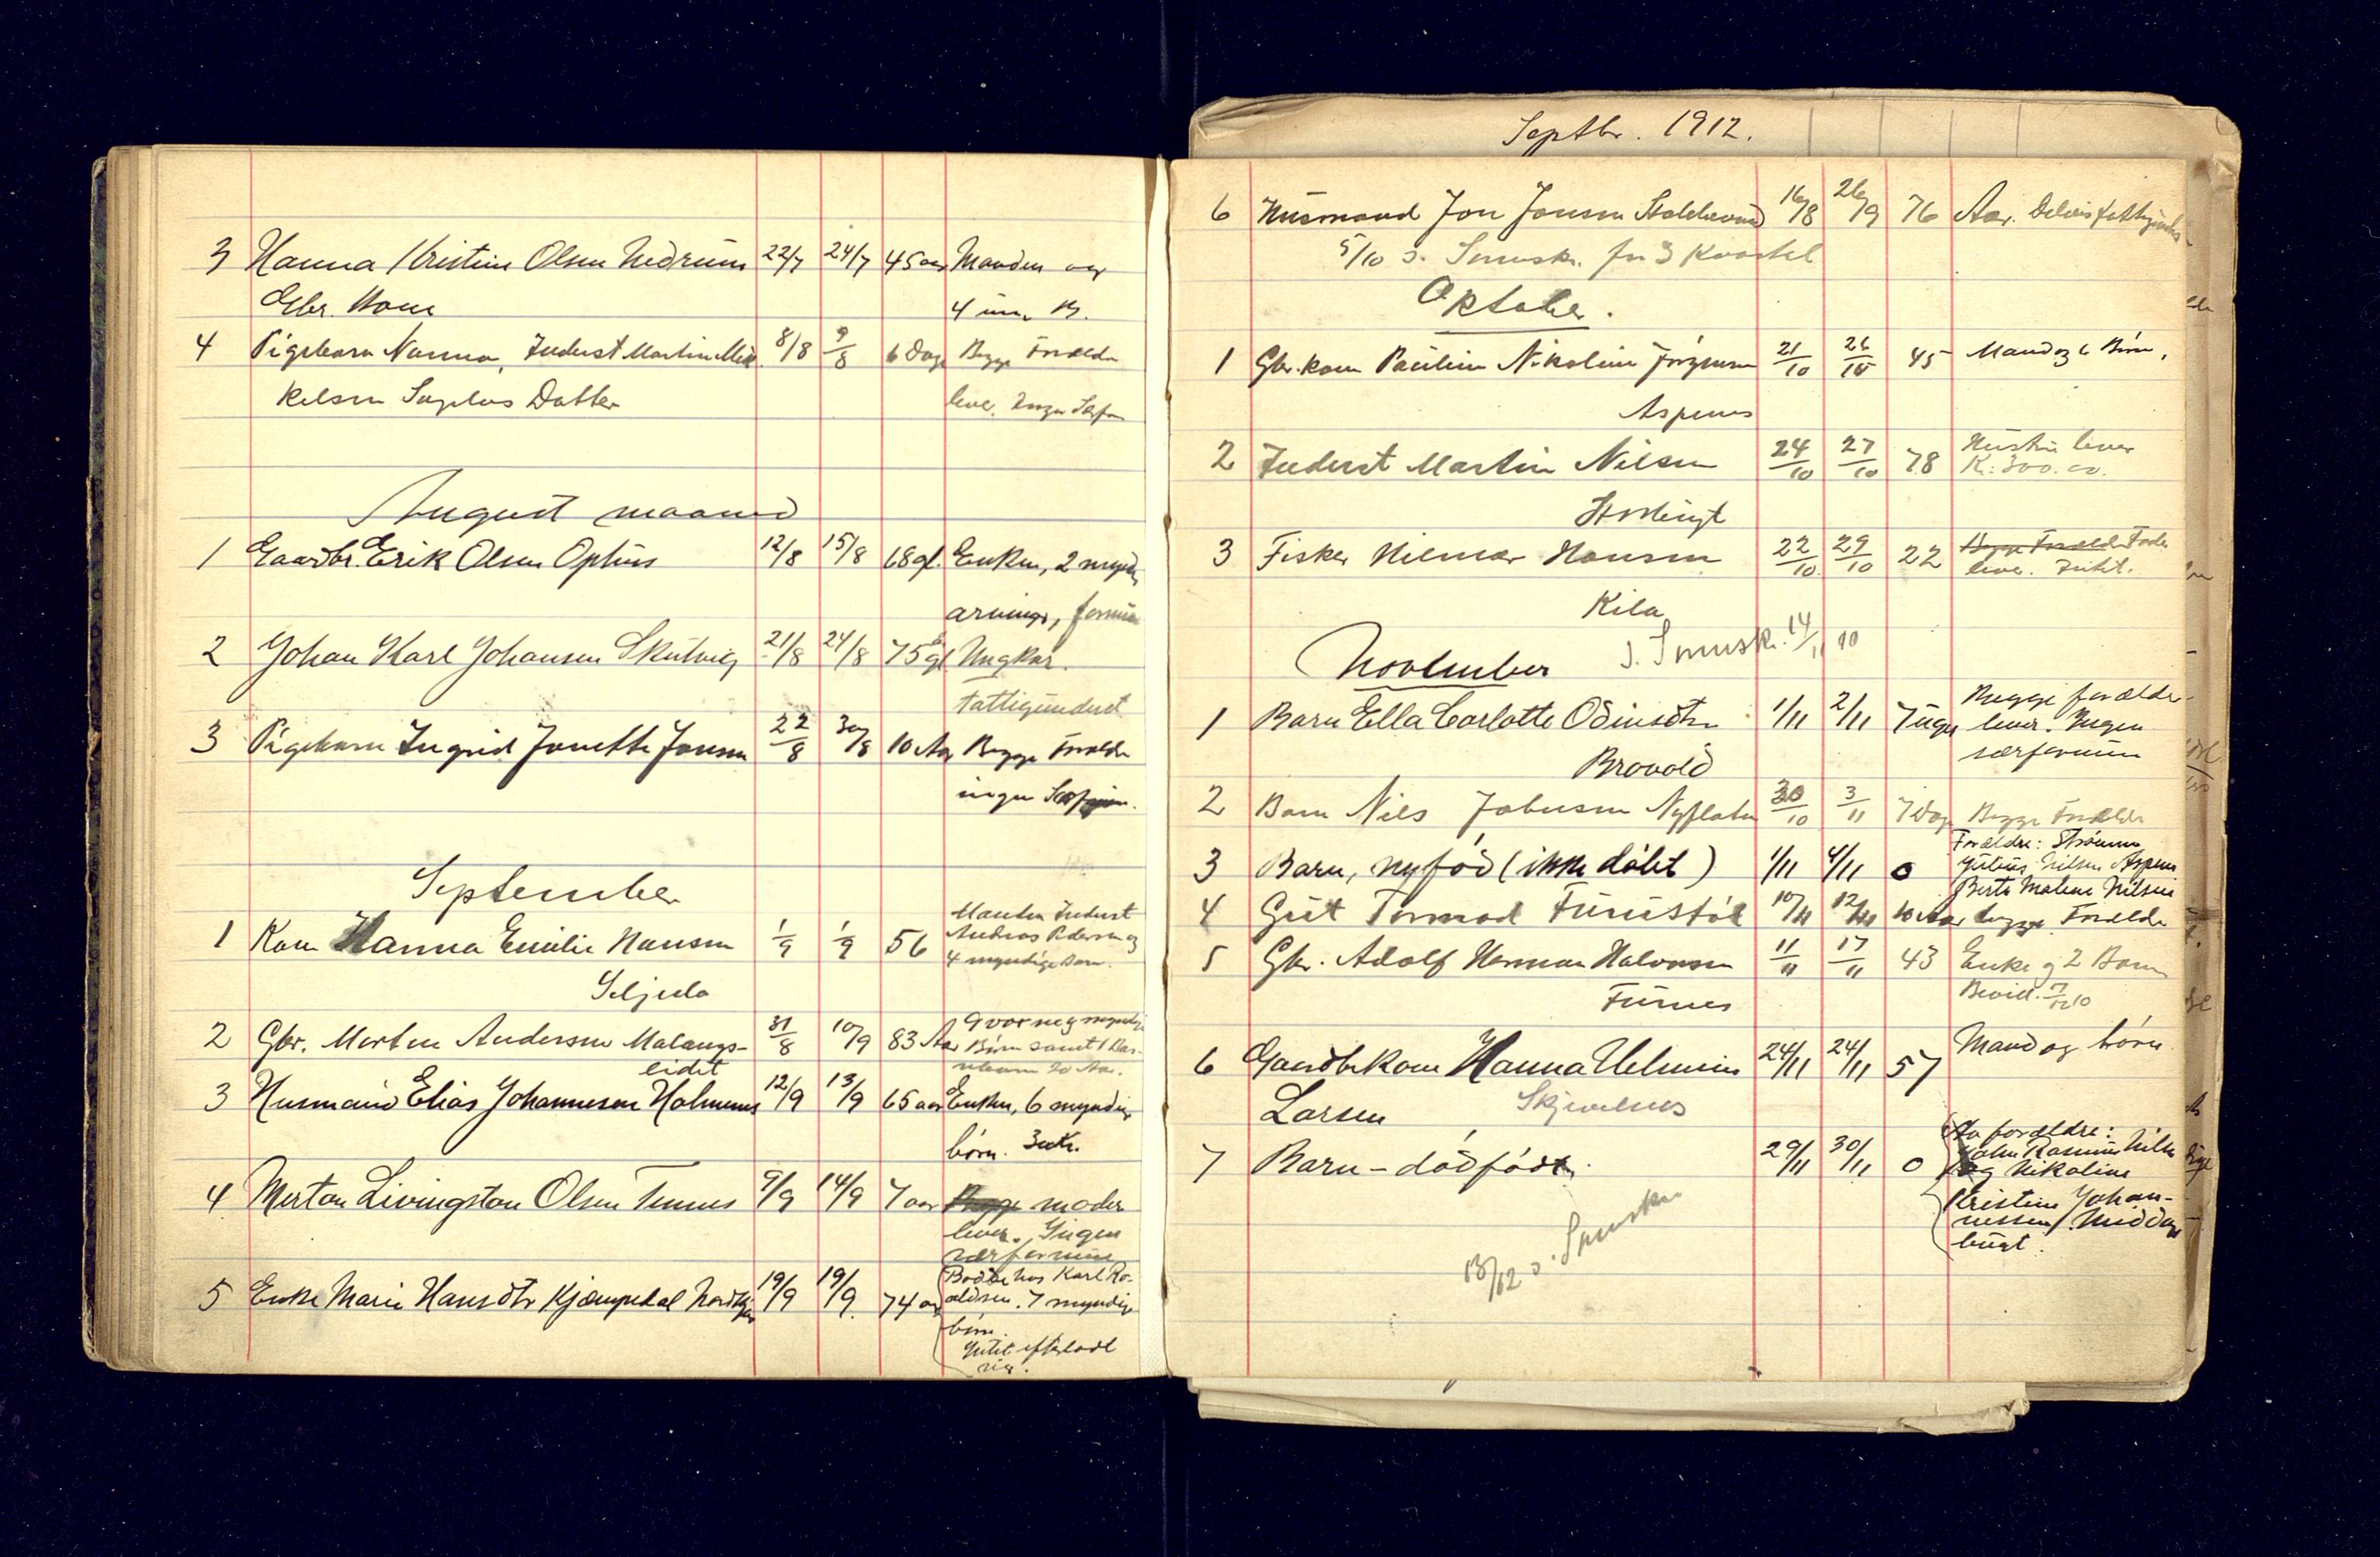 3 Hanna Kristine Olsen Nedrum 22/7 24/7 45 aar Manden og
Gbr. Kone 4 um. B.
4 Pigebarn Nanna, Inderst Martin Mik 8/8 9/8 6 Dage Begge Forældre
kelsen Datter lever. Ingen
August maaned
1 Gaardbr. Erik Olsen Ophus 12/8 15/8 68 gl. Enken, 2 myndig
arvinger, formue
2 Johan Karl Johansen Skutvig 21/8 24/8 75 gl Ungkar.
fattigunderst
3 Pigebarn Ingrid Jonette Jensen 22/8 30/8 10 Aar Begge Forældre
ingen
September
1 Kone Hanna Emilie Hansen 1/9 1/9 56 Manden Inderst
Andreas Pedersen og
4 myndige Børn.
Seljela
2 Gbr. Morten Andersen Malangs- 31/8 10/9 83 Aar 9 voxne g myndig
eidet Børn samt 1 Bar-
nebarn 20 Aar.
3 Husmand Elias Johannesen Holmenes 12/9 13/9 65 aar Enken, 6 myndige
børn. Intet.
4 Merton Livingston Olsen Tennes 9/9 14/9 7 aar Begge moder
lever. Ingen
særformue
5 Enke Marie Hansdtr Kjæmpedal 19/9 19/9. 74 aar Bodde hos Karl Ro-
aldsen. 7 myndige
børn.
Intet efterladt
sig.
Septbr. 1912.
6 Husmand Jon Jonsen 16/8 26/9 76 Aar. Delvis
5/10 s. Skifte for 3 Kvartal
Oktober.
1 Gbr. kone Pauline Nikoline Jørgensen 21/10 26/10 45 Mand og 6 Børn.
Aspenes
2 Inderst Martin Nilsen 24/10 27/10 78 Hustru lever
K: 300.00.
3 Fisker Hilmar Hansen 22/10 29/10 22 Begge Forældre Fader
lever. Intet.
Kila
November 14/11 10
1 Barn Ella Carlotte Odinsdtr 1/11 2/11 7 uger Begge forældre
lever. Ingen
særformue
Brovold
2 Barn Nils Jakobsen Nyflaten 30/10 3/11 7 Dage Begge Forældre
3 Barn, nyfød (ikke døbt) 1/11 4/11 0 Forældre:
Julius Nilsen Aspenes
Berte Malene Nilsen
4 Gut Tormod Furustøl 10/11 12/11 10 Aar begge Forældre
5 Gbr. Adolf Herman Halvorsen 11/11 17/11 43 Enke g 2 Børn
Furnes Bevill. 7/12 10
6 Gaardbrkone Hanna Helmine 24/11 24/11 57 Mand og børn
Larsen Skjevelnes
7 Barn - dødfødt. 29/11 30/11 0 Av forældre:
John Rasmus Nilsen
og Nikoline
Kristine Johan-
nessen, Middags
bugt.
13/12